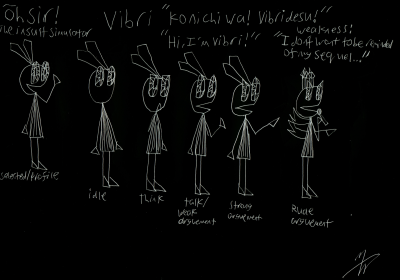 Oh Sir!
The insult simulator
Vibri
"konichiwa! Vibri desu!"
"Hi, I'm Vibri!"
weakness!
"I don't want to be reminded
of my sequel..."
selected/profile
idle
think
talk/
weak
arguement
Strong
arguement
Rude
arguement